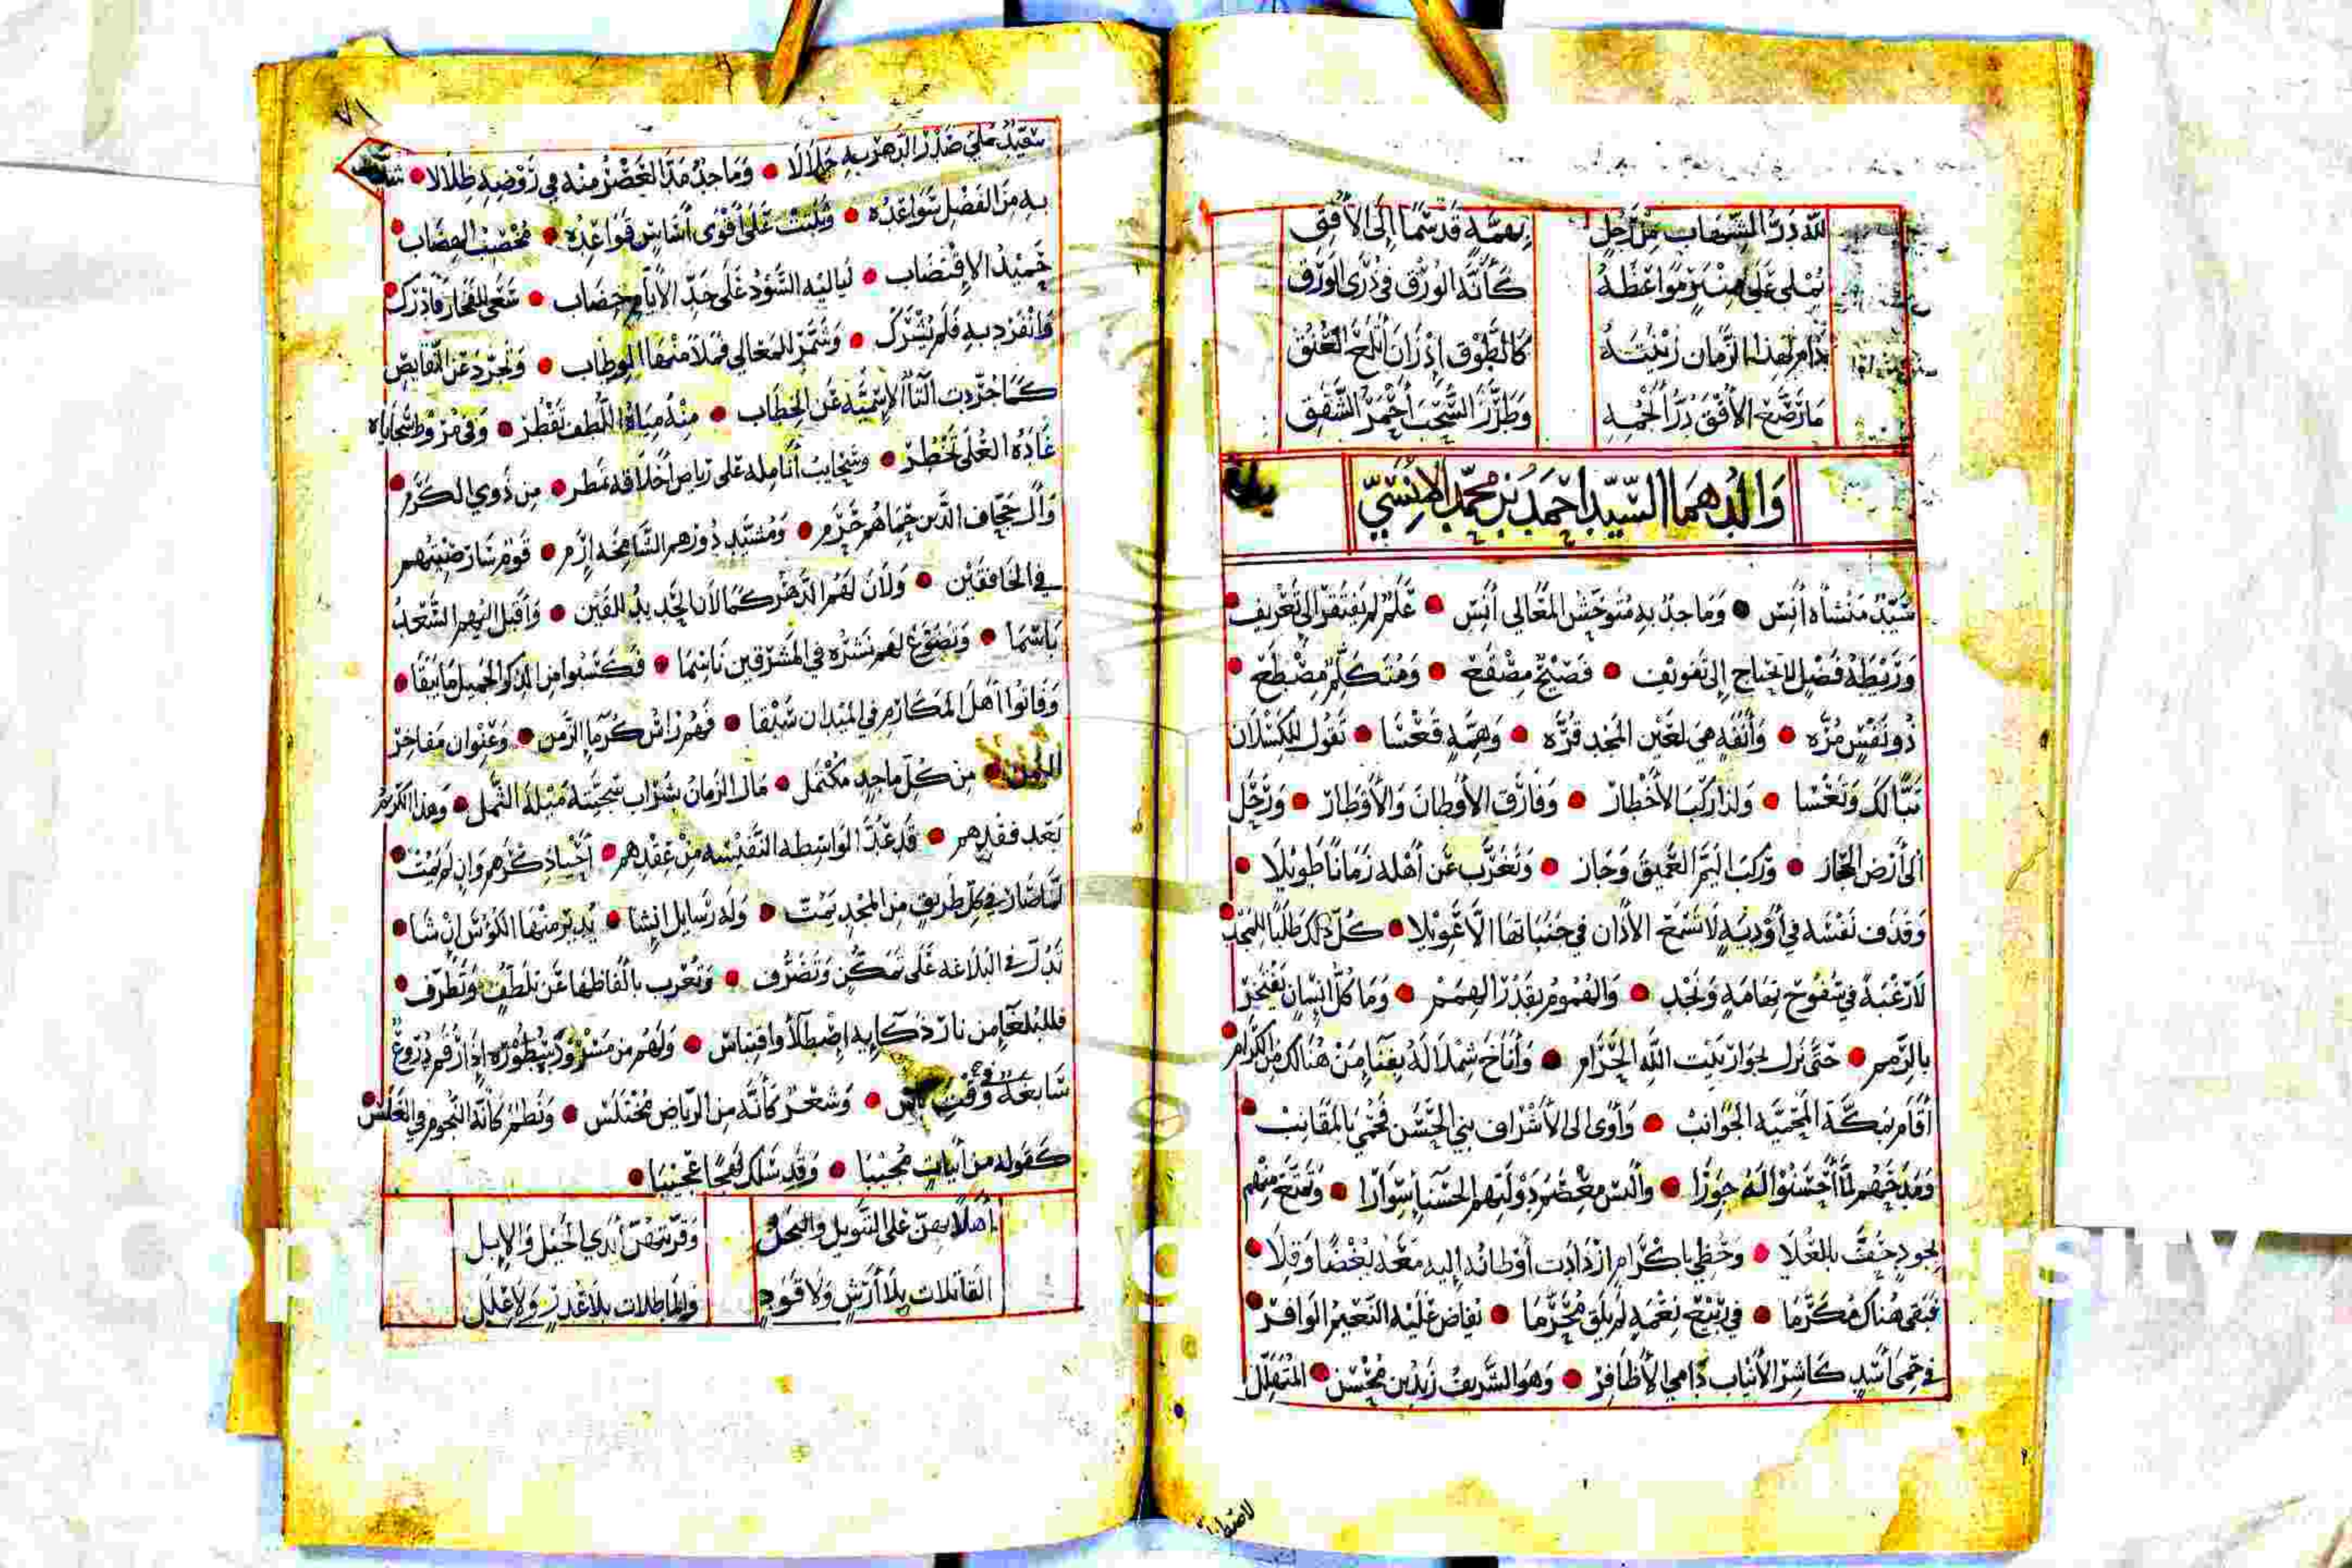 لله در الشهاب من رجل بهمة قد سما إلى الأفق
تملى على منبر مواعظه كأنه الورق في ذرى الورق
دام لهذا الزمان زينته كالطوق إذ زان أبلج العنق
ما رصع الأفق در أنجمه وطرز السحب أحمر الشفق
والدهما السيد احمد بن محمد الانسي
سيد منشاه أنس • وماجد به متوحش المعالي أنس • علم لم يفتقر إلى تعريف
وربطة فضل لا تحتاج إلى تفويف • فصيح مصقع • ومتكلم مضطلع •
ذو نفس مزه • وأنفة هي لعين المجد قره • وهمة قعسا • تقول للكسلان
تبا لك وتعسا • ولذا ركب الأخطار • وفارق الأوطان والأوطار • ورحل
إلى أرض الحجاز • وركب اليم العميق وجاز • وتغرب عن أهله زمانا طويلا •
وقذف نفسه في أودية لا تسمع الأذان في جنباتها الا عويلا • كل ذلك طلبا للمجد •
لا رغبة في سفوح تهامة ونجد • والهموم بقدر الهمم • وما كل إنسان يفتخر
بالرمم • حتى نزل بجوار بيت الله الحرام • وأناخ شملاله بفنا من هنالك من الكرام •
أقام بمكة المحمية الجوانب • وأوى إلى الأشراف بني الحسن فحمي بالمقانب •
ومدحهم لما أحسنوا له جوارا • وألبس معصم دولتهم الحسنا سوارا • وتمتع منهم
بجود خف بالعلا • وحظي باكرام ازدادت أوطانه إليه معه بغضا وقلا •
فبقي هناك مكرما • في ربيع نعمة لم يلق محرما • تفاض عليه النعم الوافر •
في حمى أسد كاشر الأنياب دامي الأظافر • وهو الشريف زيد بن محسن • المتهلل
٧١
سيد على صدر الدهر به جلالا • وماجد مد الغصن منه في روضه ظلالا •
به من الفضل سواعده • وثبتت على أقوى أساس قواعده • مخصب الهضاب •
حميد الاقتضاب • لياليه السود على خد الأيام خضاب • سعى للفخار فأدرك •
وانفرد به فلم يشرك • وشمر للمعالي فملا منها الوطاب • وتجرد عن النقايص
كما جردت التا الاسمية عن الخطاب • منه مياه اللطف تقطر • وفي مروط سجاياه
غادة العلى تخطر • وسحايب أنامله على رياض أخلاقه تمطر • من ذوي الكرم •
وآل جحاف الذين حماهم حرم • ومشيد دورهم الشامخة إرم • قوم سار صيتهم
في الخافقين • ولان لهم الدهر كما لان الحديد للقين • وأقبل إليهم السعد
باسما • وتضوع لهم نشره في المشرقين ناسما • فكسبوا من الذكر الجميل ما يبقا •
وفاتوا أهل المكارم في الميدان سبقا • فهم راس كرما الزمن • وعنوان مفاخر
اليمن • من كل ماجد مكتمل • مال الزمان بشراب سجيته ميلة الثمل • وهذا الكريم
بعد فقدهم • قد عد الواسطه النفيسه من عقدهم • أحيا ذكرهم وان لم يمت •
لما صار في كل طريق من المجد يمت • وله رسايل إنشا • يدير منها الكوس إن شا •
تدل في البلاغه على تمكن وتصرف • وتعرب بألفاظها عن تلطف وتطرف •
فللبلغا من نار ذكايه اصطلا واقتباس • ولهم من مسرود سطوره إذا رقم دروع
سابغة وقت • وشعر كأنه من الرياض مختلس • ونظم كانه النجوم في الغلس •
كقوله من أبيات مجيبا • وقد سلك نهجا عجيبا •
أهلا بهن على التنويل والبخل وقربتهن أيدي الخيل والإبل
القاتلات بلا أرش ولا قود والماطلات بلا عذر ولا علل